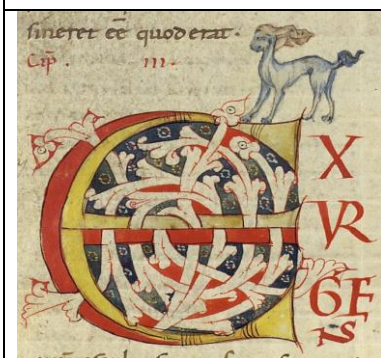 sineret eẽ quod erat.
Cip̃. III.
E
X
VR
GE
NS